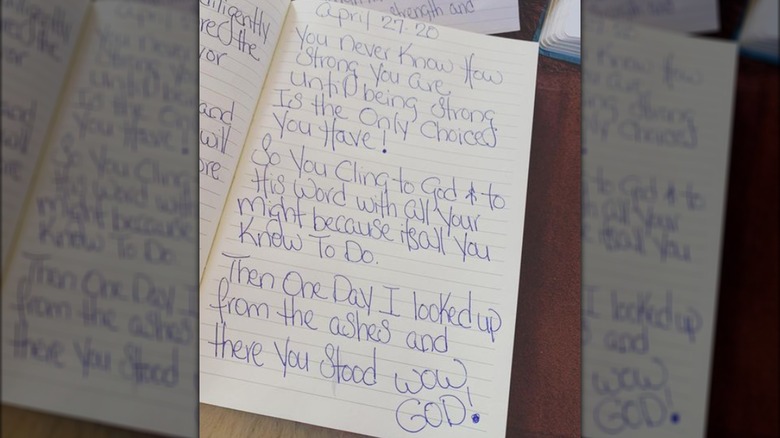 strength and
iligently
red the
vor
and
will
ore
April 27. 20
You Never Know How
Strong You are,
Until being Strong
Is the Only Choices
You Have!
So You Cling to God & to
His Word with all Your
might because its all You
Know To Do.
Then One Day I looked up
from the ashes and
there You Stood wow
GOD!